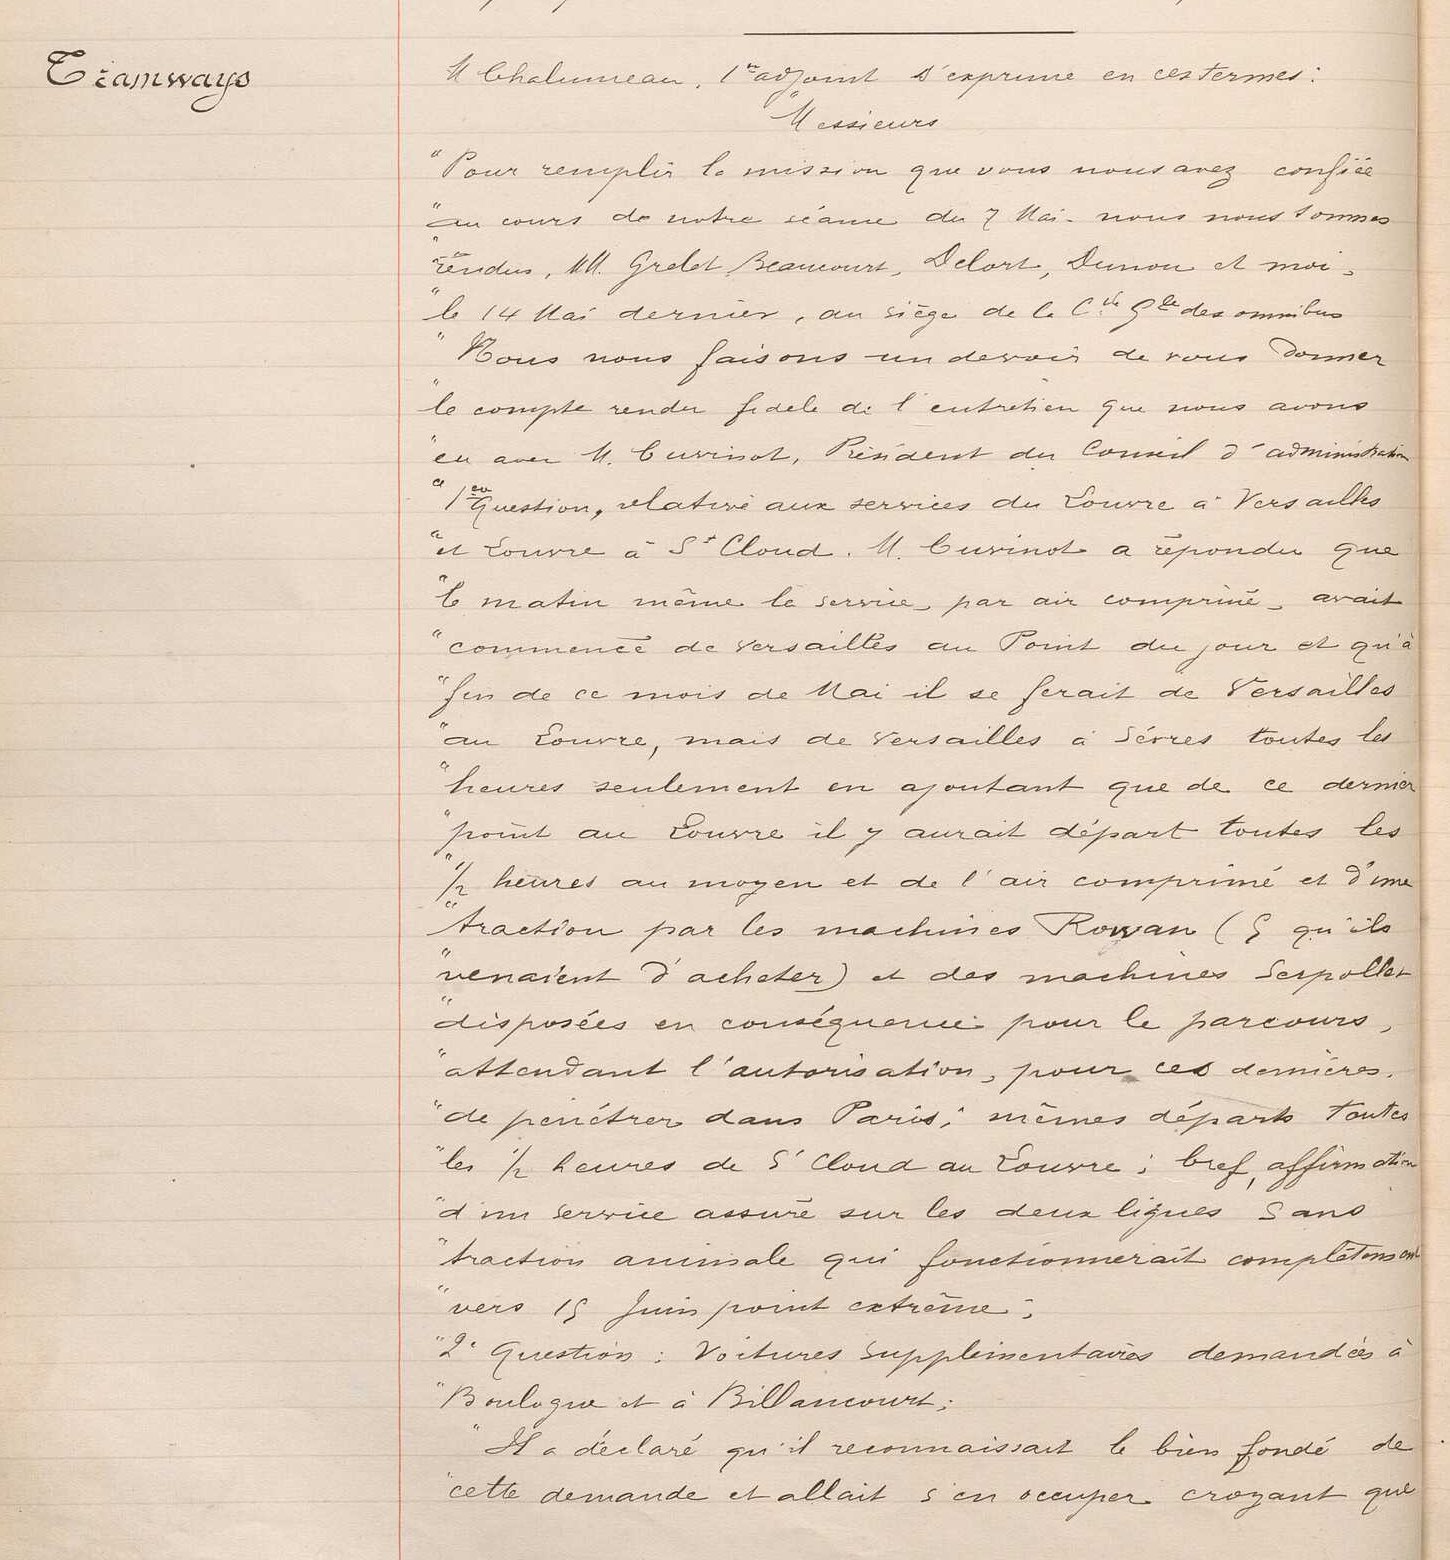 Tramways
M Chalumeau, 1er adjoint s'exprime en ces termes :
"Messieurs
"Pour remplir la mission que vous nous avez confiée
"au cours de notre séance du 7 Mai - nous nous sommes
"rendus, MM. Grelet, Beaucourt, Delort, Dunou et moi,
"le 14 Mai dernier, au siège de la Cie Gle des omnibus
"Nous nous faisons un devoir de vous donner
"le compte rendu fidele de l'entretien que nous avons
"eu avec M. Cuvinot, Président du Conseil d'administration
"1ere Question, relative aux services du Louvre à Versailles
"et Louvre à St Cloud. M. Cuvinot a répondu que
"le matin même le service, par air comprimé, avait
"commencé de Versailles au Point du jour et qu'à
"fin de ce mois de Mai il se ferait de Versailles
"au Louvre, mais de Versailles à Sèvres toutes les
"heures seulement en ajoutant que de ce dernier
"point au Louvre il y aurait départ toutes les
"1/2 heures au moyen et de l'air comprimé et d'une
"traction par les machines Rowan (5 qu'ils
"venaient d'acheter) et des machines Serpollet
"disposées en conséquence pour le parcours,
"attendant l'autorisation, pour ces dernières,
"de pénétrer dans Paris ; mêmes départs toutes
"les 1/2 heures de St Cloud au Louvre ; bref, affirmation
"d'un service assuré sur les deux lignes sans
"traction animale qui fonctionnerait complètement
"vers 15 Juin point extrême ;
"2e Question : Voitures supplémentaires demandées à
"Boulogne et à Billancourt ;
"Il a déclaré qu'il reconnaissait le bien fondé de
"cette demande et allait s'en occuper croyant que